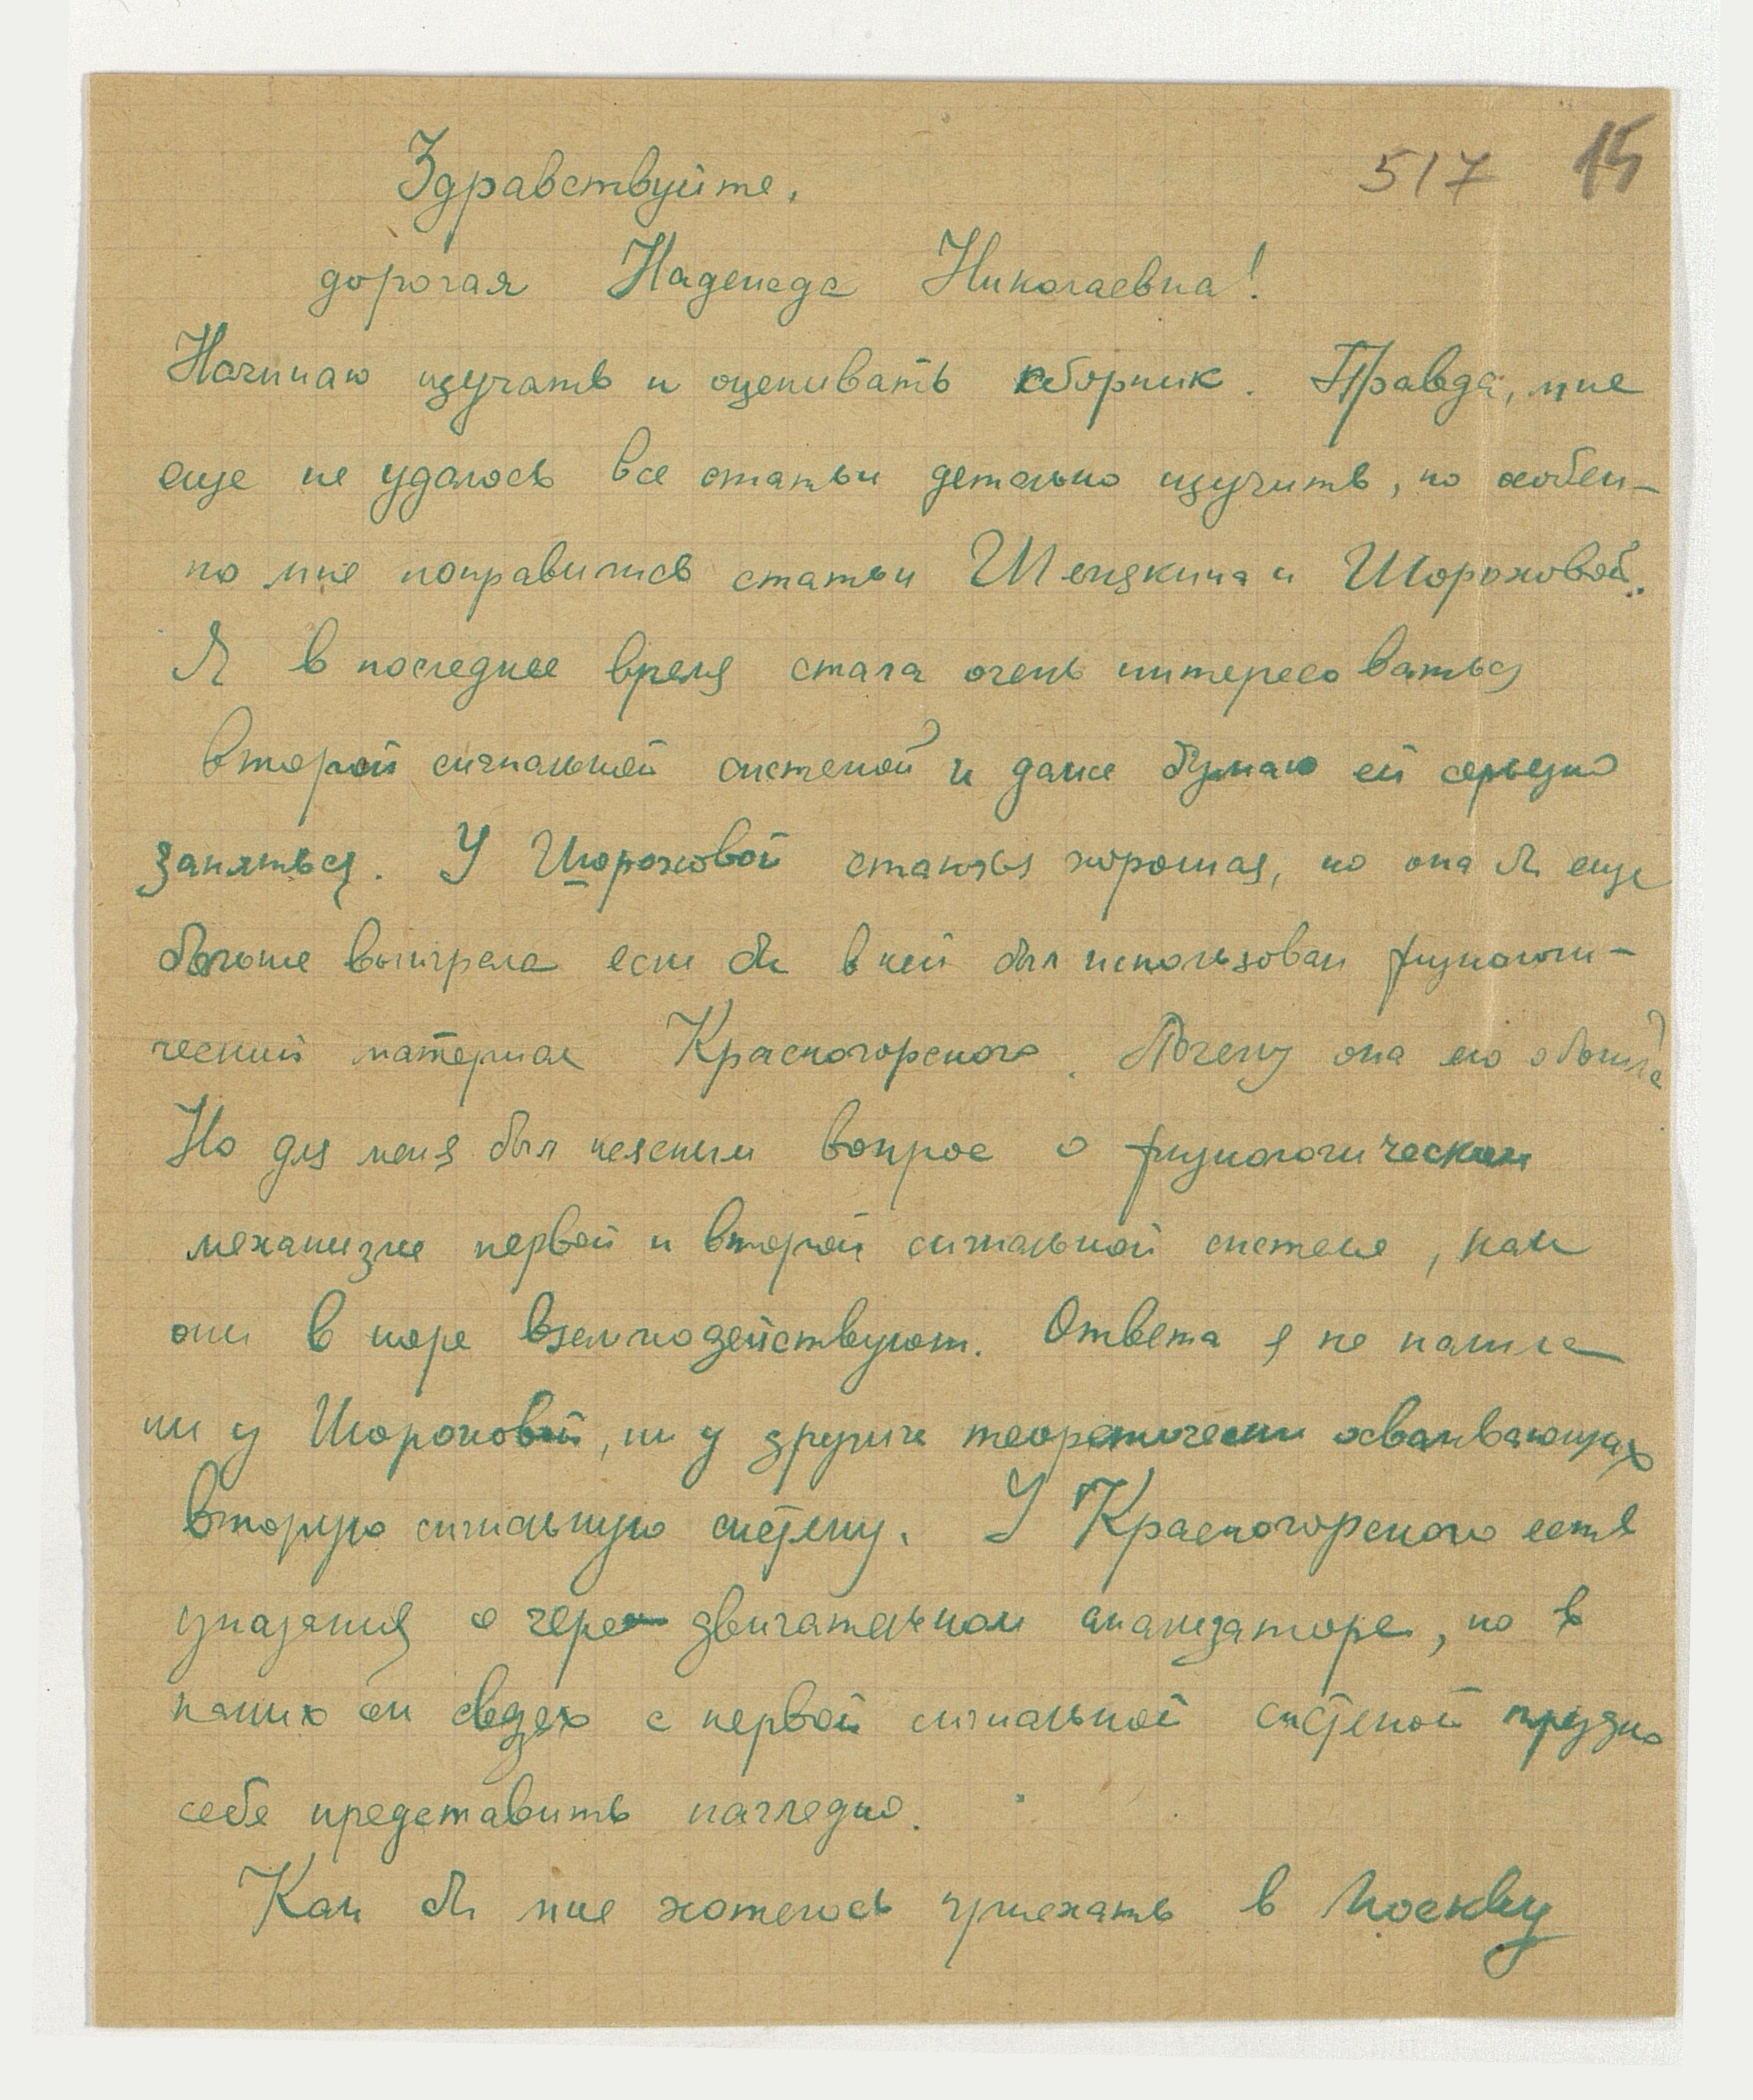 517 15
Здравствуйте,
дорогая Надежда Николаевна!
Начинаю изучать и оценивать сборник. Правда, мне
еще не удалось все статьи детально изучить, но особен-
но мне понравились статьи Шемякина и Шороховой.
Я в последнее время стала очень интересоваться
второй сигнальной системой и даже думаю ей серьезно
заняться. У Шороховой статья хорошая, но она бы еще
больше выиграла если бы в ней был использован физиологи-
ческий материал Красногорского. Почему она его обошла?
Но для меня был неясным вопрос о физиологическом
механизме первой и второй сигнальной системе, как
они в коре взаимодействуют. Ответа я не нашла
ни у Шороховой, ни у других теоретически осваивающих
вторую сигнальную систему. У Красногорского есть
указания о двигательном анализаторе, но в
каких он связях с первой сигнальной системой трудно
себе представить наглядно.
Как бы мне хотелось приехать в Москву